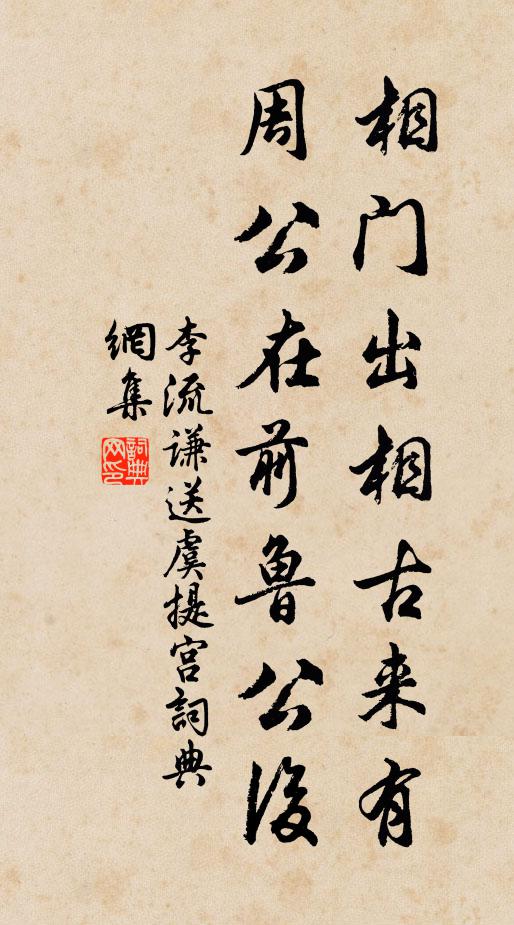 相门出相古来有
周公在前鲁公後
李流谦送虞提宫詞典
網集
詞典网印